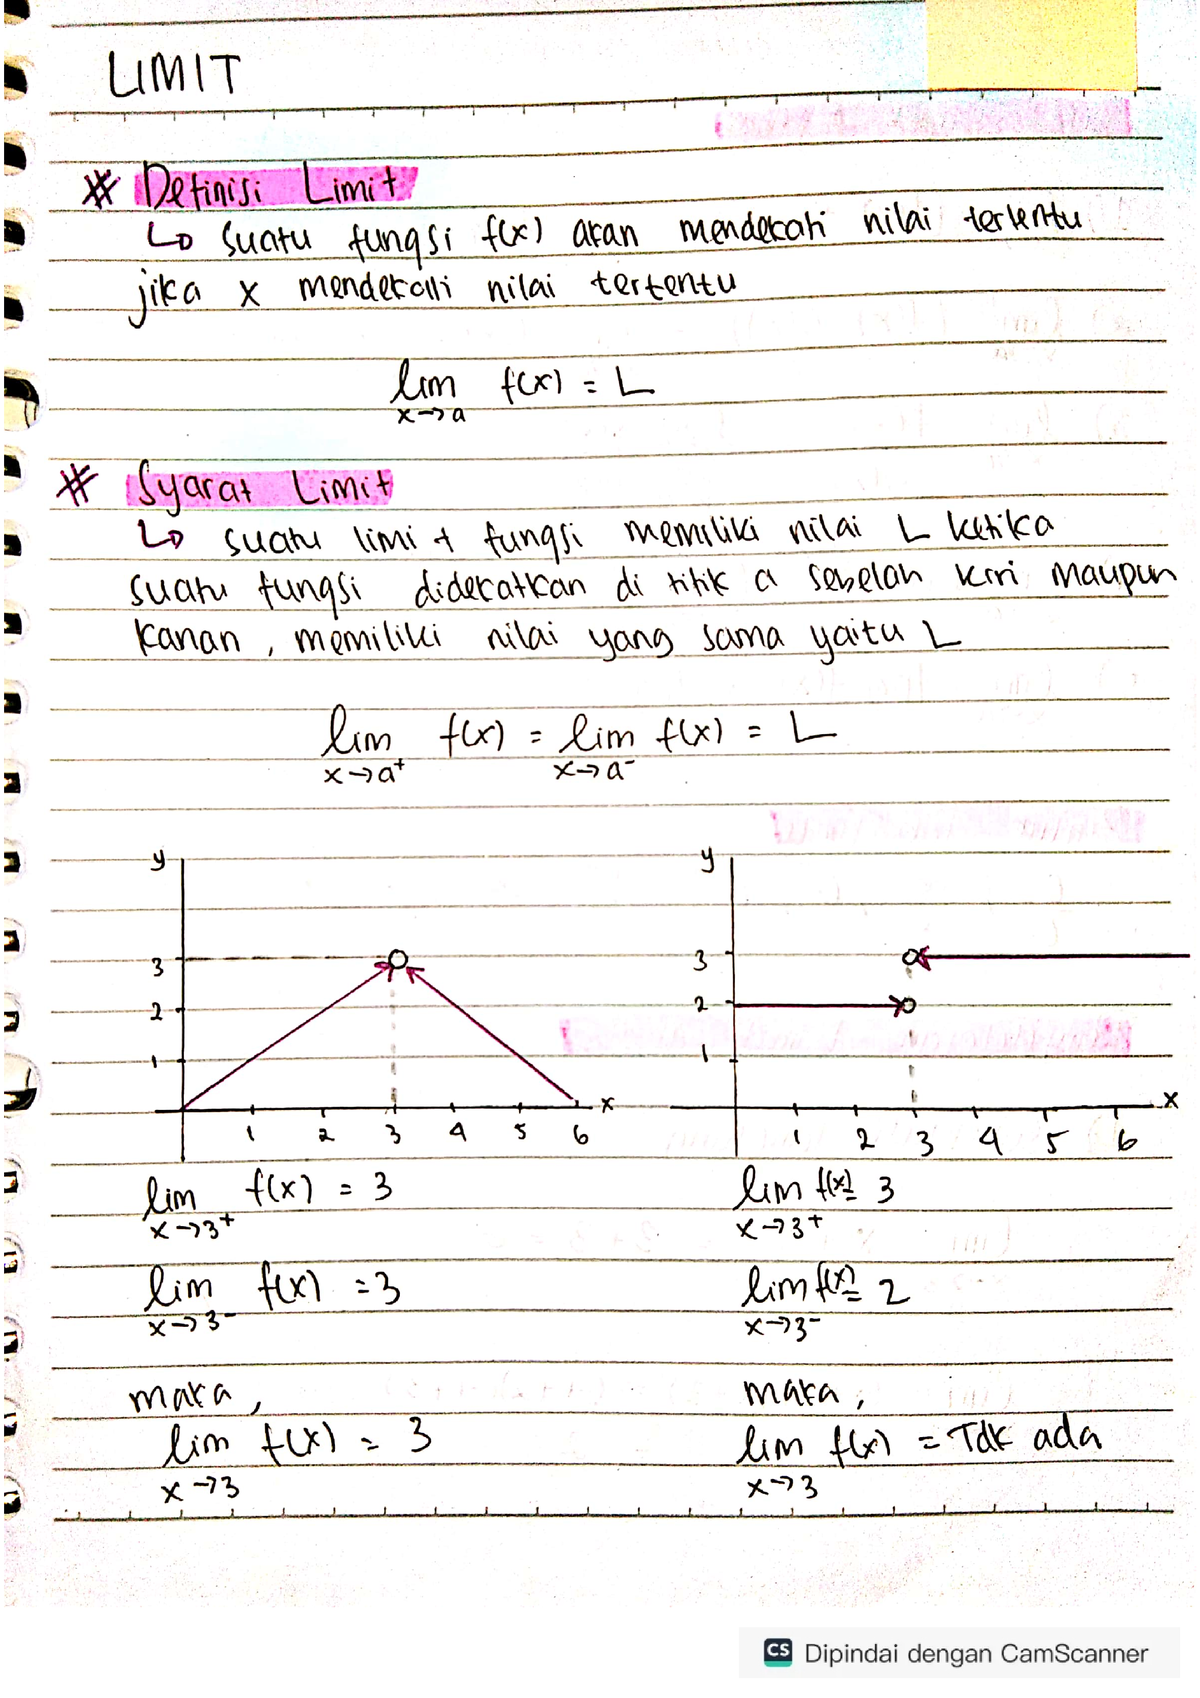 LIMIT
# Definisi Limit
↳ suatu fungsi f(x) akan mendekati nilai tertentu
jika x mendekati nilai tertentu
lim f(x) = L
x→a
# Syarat Limit
↳ suatu limit fungsi memiliki nilai L ketika
suatu fungsi didekatkan di titik a sebelah kiri maupun
kanan, memiliki nilai yang sama yaitu L
lim f(x) = lim f(x) = L
x→a⁺ x→a⁻
y y
3 3
2 2
1 1
x x
1 2 3 4 5 6 1 2 3 4 5 6
lim f(x) = 3 lim f(x) = 3
x→3⁺ x→3⁺
lim f(x) = 3 lim f(x) = 2
x→3⁻ x→3⁻
maka, maka,
lim f(x) = 3 lim f(x) = Tdk ada
x→3 x→3
CS Dipindai dengan CamScanner